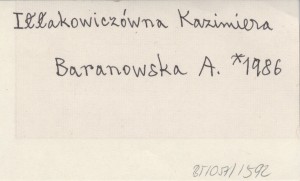 Iłłakowiczówna Kazimiera
Baranowska A. *1986
85/057/1592